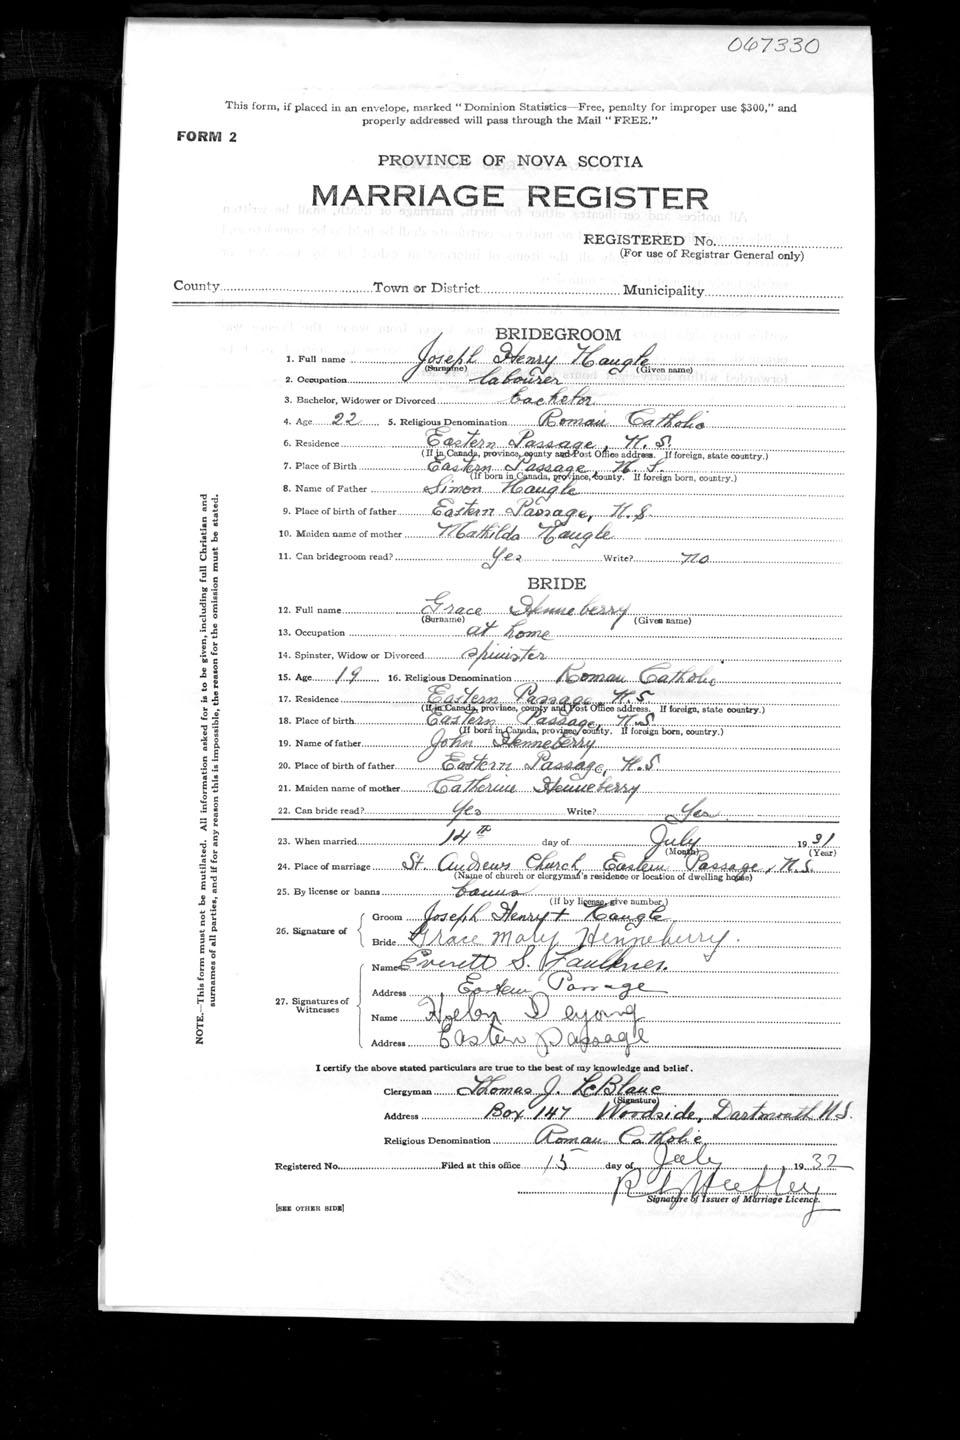 067330
This form, if placed in an envelope, marked "Dominion Statistics—Free, penalty for improper use $300," and
properly addressed will pass through the Mail "FREE."
FORM 2
PROVINCE OF NOVA SCOTIA
MARRIAGE REGISTER
REGISTERED No.
(For use of Registrar General only)
County Town or District Municipality
BRIDEGROOM
1. Full name Joseph Henry Naugle
(Surname) (Given name)
2. Occupation labourer
3. Bachelor, Widower or Divorced bachelor
4. Age 22 5. Religious Denomination Roman Catholic
6. Residence Eastern Passage, N.S.
(If in Canada, province, county and Post Office address. If foreign, state country.)
7. Place of Birth Eastern Passage, N.S.
(If born in Canada, province, county. If foreign born, country.)
8. Name of Father Simon Naugle
9. Place of birth of father Eastern Passage, N.S
10. Maiden name of mother Mathilda Naugle
11. Can bridegroom read? Yes Write? no
BRIDE
12. Full name Grace Henneberry
(Surname) (Given name)
13. Occupation at home
14. Spinster, Widow or Divorced spinister
15. Age 19 16. Religious Denomination Roman Catholic
17. Residence Eastern Passage, N.S.
(If in Canada, province, county and Post Office address. If foreign, state country.)
18. Place of birth Eastern Passage, N.S.
(If born in Canada, province/county. If foreign born, country.)
19. Name of father John Henneberry
20. Place of birth of father Eastern Passage, N.S
21. Maiden name of mother Catherine Henneberry
22. Can bride read? Yes Write? Yes
23. When married 14th day of July 1931
(Month) (Year)
24. Place of marriage St. Andrews Church, Eastern Passage, N.S.
(Name of church or clergyman's residence or location of dwelling house)
25. By license or banns banns
(If by license, give number.)
26. Signature of Groom Joseph Henry + Naugle
Bride Grace Mary Henneberry.
27. Signatures of Witnesses Name Everett S. Faulkner.
Address Eastern Passage
Name Helen Deyoung
Address Eastern passage
NOTE.—This form must not be mutilated. All information asked for is to be given, including full Christian and
surnames of all parties, and if for any reason this is impossible, the reason for the omission must be stated.
I certify the above stated particulars are true to the best of my knowledge and belief.
Clergyman Thomas J. LeBlanc
(Signature)
Address Box 147 Woodside, Dartmouth N.S.
Religious Denomination Roman Catholic
Registered No. Filed at this office 15 day of July 1932
Signature of Issuer of Marriage Licence.
[SEE OTHER SIDE]